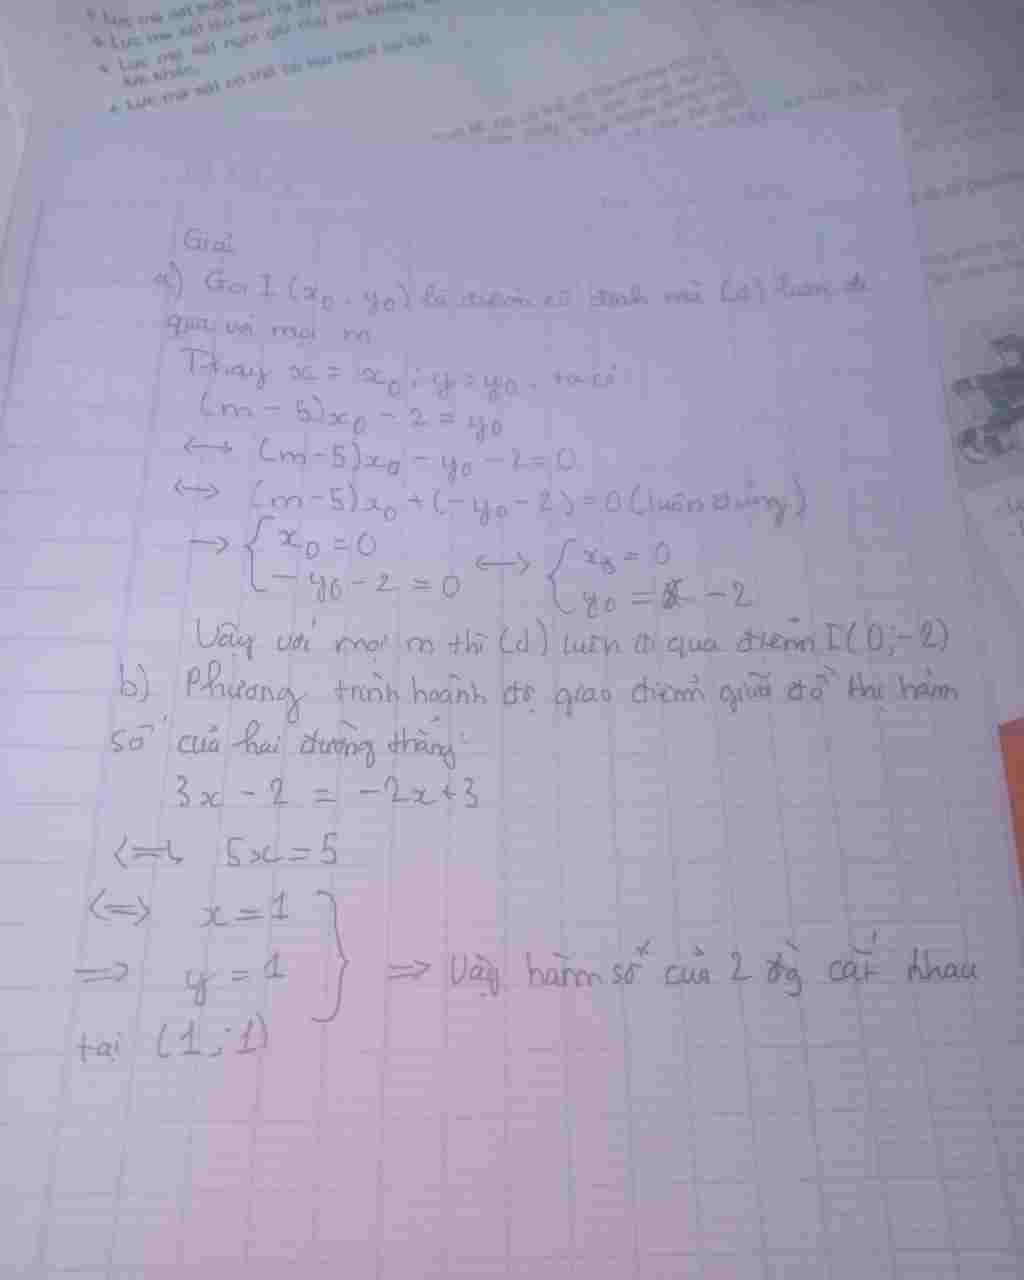 Lực ma sát
Lực ma sát
Lực ma sát
Lực ma sát có thể
Giải
a) Gọi I (x₀, y₀) là điểm cố định mà (d) luôn đi
qua với mọi m
Thay x = x₀ ; y = y₀, ta có:
(m - 5)x₀ - 2 = y₀
<-> (m-5)x₀ - y₀ - 2 = 0
<-> (m-5)x₀ + (-y₀ - 2) = 0 (luôn đúng)
-> { x₀ = 0 <-> { x₀ = 0
{ -y₀ - 2 = 0 { y₀ = -2
Vậy với mọi m thì (d) luôn đi qua điểm I(0;-2)
b) Phương trình hoành độ giao điểm giữa đồ thị hàm
số của hai đường thẳng:
3x - 2 = -2x+3
<=> 5x = 5
<=> x = 1
=> y = 1 } => Vậy hàm số của 2 đg cắt nhau
tại (1;1)